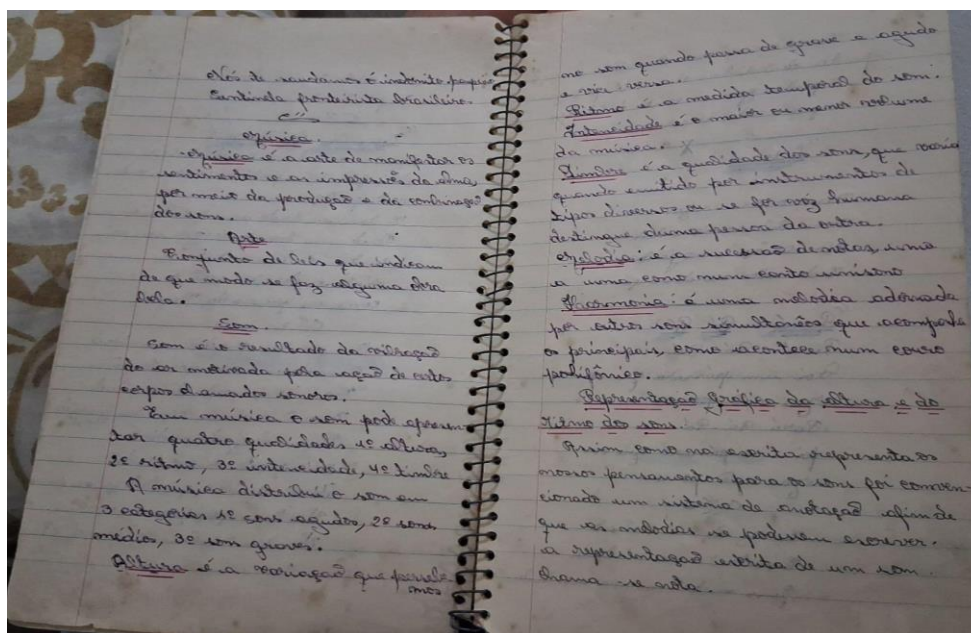 Nós te saudamos é indomito
Cantinela fronteirista brasileiro.
Música.
Música é a arte de manifestar os
sentimentos e as impressões da alma,
por meio da produção e da combinação
dos sons.
Arte
Conjunto de leis que indicam
de que modo se faz alguma obra
bela.
Som.
Som é o resultado da vibração
do ar motivada pela ação de certos
corpos chamados sonoros.
Em música o som pode apresen-
tar quatro qualidades 1º altura,
2º ritmo, 3º intensidade, 4º timbre
A música distribui o som em
3 categorias 1º sons agudos, 2º sons
médios, 3º som graves.
Altura é a variação que percebe
mos
no som quando passa de grave a agudo
e vice versa.
Ritmo é a medida temporal do som.
Intencidade é o maior ou menor volume
da música.
Timbre é a qualidade dos sons, que varia
quando emitido por instrumentos de
tipos diversos ou se for voz humana
destingue duma pessoa da outra.
Melodia: é a sucessão de notas, uma
a uma como num canto uníssono
Harmonia: é uma melodia adornada
por outros sons simultâneos que acompanha
os principais, como acontece num couro
polifônico.
Representação gráfica da altura e do
ritmo dos sons.
Assim como na escrita representa os
nossos pensamentos para os sons foi conven-
cionado um sistema de anotação afim de
que as melodias se podessem escrever.
a representação escrita de um som
chama-se nota.